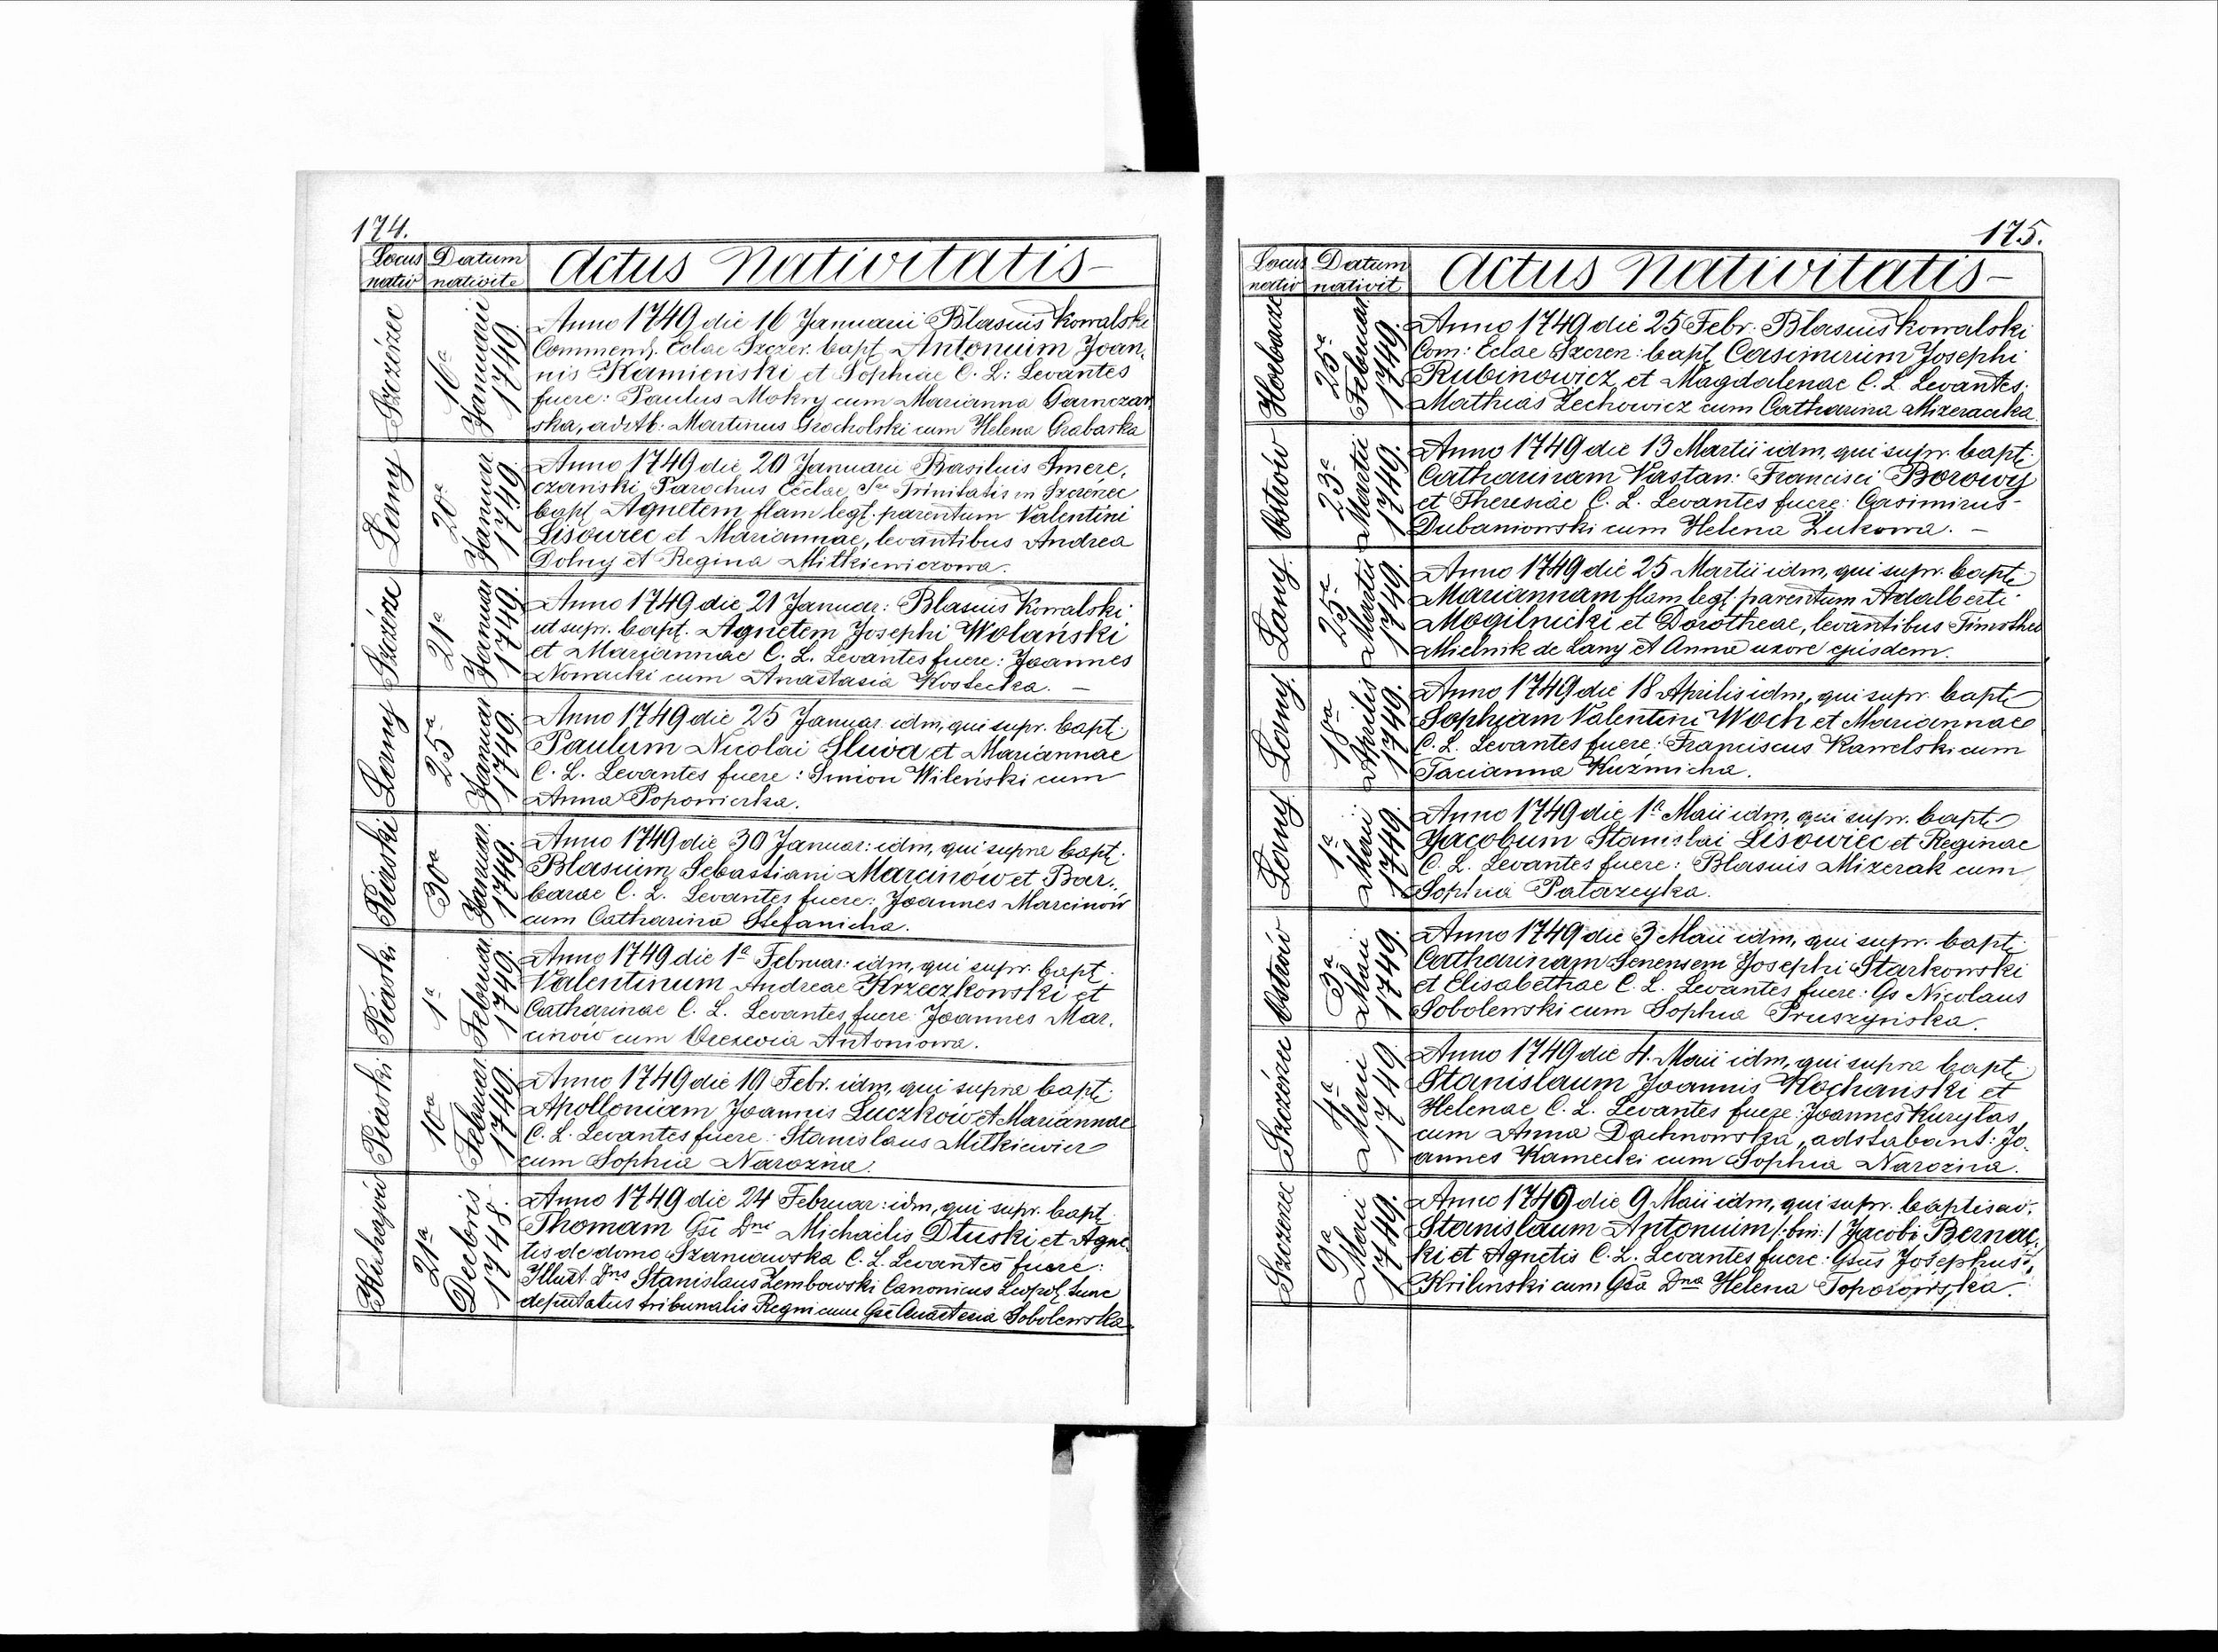 174.
Locus nativ
Datum nativit
Actus Nativitatis
Szczérzec
16a Januarii 1749.
Anno 1749 die 16 Januarii Blasius Kowalski
Commend. Eclae Szczer. bapt. Antonium Joan,
nis Kamieński et Sophiae C. L: Levantes
fuere: Paulus Mokry cum Marianna Garnczar
ska, adstb: Martinus Grocholski cum Helena Grabarka
Łany
20a Januar 1749.
Anno 1749 die 20 Januarii Basilius
czański Parochus Ecclae Stae Trinitatis in Szczérzec
bapt Agnetem flam legt. parentum Valentini
Lisowiec et Mariannae, levantibus Andrea
Dolny et Regina Mitkiewiczowa.
21a Januar 1749.
Anno 1749 die 21 Januar: Blasius Kowalski
ut supr. bapt. Agnetem Josephi Wolański
et Mariannae C. L. Levantes fuere: Joannes
Nowacki cum Anastasia Kostecka. –
Łany
25a Januar 1749.
Anno 1749 die 25 Januar. idm, qui supr. bapt.
Paulum Nicolai Sliwa et Mariannae
C. L. Levantes fuere: Simion Wileński cum
Anna Popowiczka.
Piaski
30a Januar. 1749.
Anno 1749 die 30 Januar: idm, qui supra bapt.
Blasium Sebastiani Marcinów et Bar,
barae C. L. Levantes fuere: Joannes Marcinów
cum Catharina Stefanicha.
Piaski
1a Februar 1749.
Anno 1749 die 1a Februar: idm, qui supr. bapt.
Valentinum Andreae Krzeczkowski et
Catharinae C. L. Levantes fuere Joannes Mar,
cinów cum Antoniowa.
Piaski
10a Februar. 1749.
Anno 1749 die 10 Febr. idm, qui supra bapt.
Apolloniam Joannis Luczków et Mariannae
C. L. Levantes fuere: Stanislaus Mitkiewicz
cum Sophia Narozna.
21a Decbris 1748.
Anno 1749 die 24 Februar: idm, qui supr. bapt.
Thomam Gsi Dni Michaelis Dłuski et Agne
tis de domo Szaniawska C. L. Levantes fuere:
Illust. Dns Stanislaus Zembowski Canonicus Leopol. tunc
deputatus tribunalis Regni cum Gsa Anastasia Sobolewska
175.
Locus nativ
Datum nativit
Actus Nativitatis
Horbacze
25a Februar 1749.
Anno 1749 die 25 Febr. Blasius Kowalski
Com: Eclae Szcrzen: bapt. Casimirum Josephi
Rubinowicz et Magdalenae C. L. Levantes:
Mathias Lechowicz cum Catharina Mizeraczka
Ostrów
23a Martii 1749.
Anno 1749 die 13 Martii idm, qui supr. bapt.
Catharinam Vastan: Francisci Borowy
et Theresiae C. L. Levantes fuere: Casimirus
Dubaniowski cum Helena Zukowa. –
Łany
25a Martii 1749.
Anno 1749 die 25 Martii idm, qui supr. bapt.
Mariannam flam legt. parentum Adalberti
Mogilnicki et Dorotheae, levantibus Timotheo
Mielnik de Łany et Anna uxore ejusdem.
Łany
18a Aprilis 1749.
Anno 1749 die 18 Aprilis idm, qui supr. bapt.
Sophiam Valentini Woch et Mariannae
C. L. Levantes fuere: Franciscus Kawelski cum
Tacianna Kuźmicha.
Łany
1a Maii 1749.
Anno 1749 die 1a Maii idm, qui supr. bapt.
Jacobum Stanislai Lisowiec et Reginae
C. L. Levantes fuere: Blasius Mizerak cum
Sophia Patazeyka.
Ostrów
3a Maii 1749.
Anno 1749 die 3 Maii idm, qui supr. bapt.
Catharinam Senensem Josephi Starkowski
et Elisabethae C. L. Levantes fuere: Gs Nicolaus
Sobolewski cum Sophia Pruszyńska.
Szczérzec
4a Maii 1749.
Anno 1749 die 4. Maii idm, qui supra bapt.
Stanislaum Joannis Kochański et
Helenae C. L. Levantes fuere: Joannes Kurylas
cum Anna Dachnowska, adstabant: Jo,
annes Kamecki cum Sophia Narozna.
Szczerzec
9a Maii 1749.
Anno 1749 die 9 Maii idm, qui supr. baptisav.
Stanislaum Antonium /:bin:/ Jacobi Bernac,
ki et Agnetis C. L. Levantes fuere: Gsus Josephus
Krilinski cum Gsa Dna Helena Toporowska.